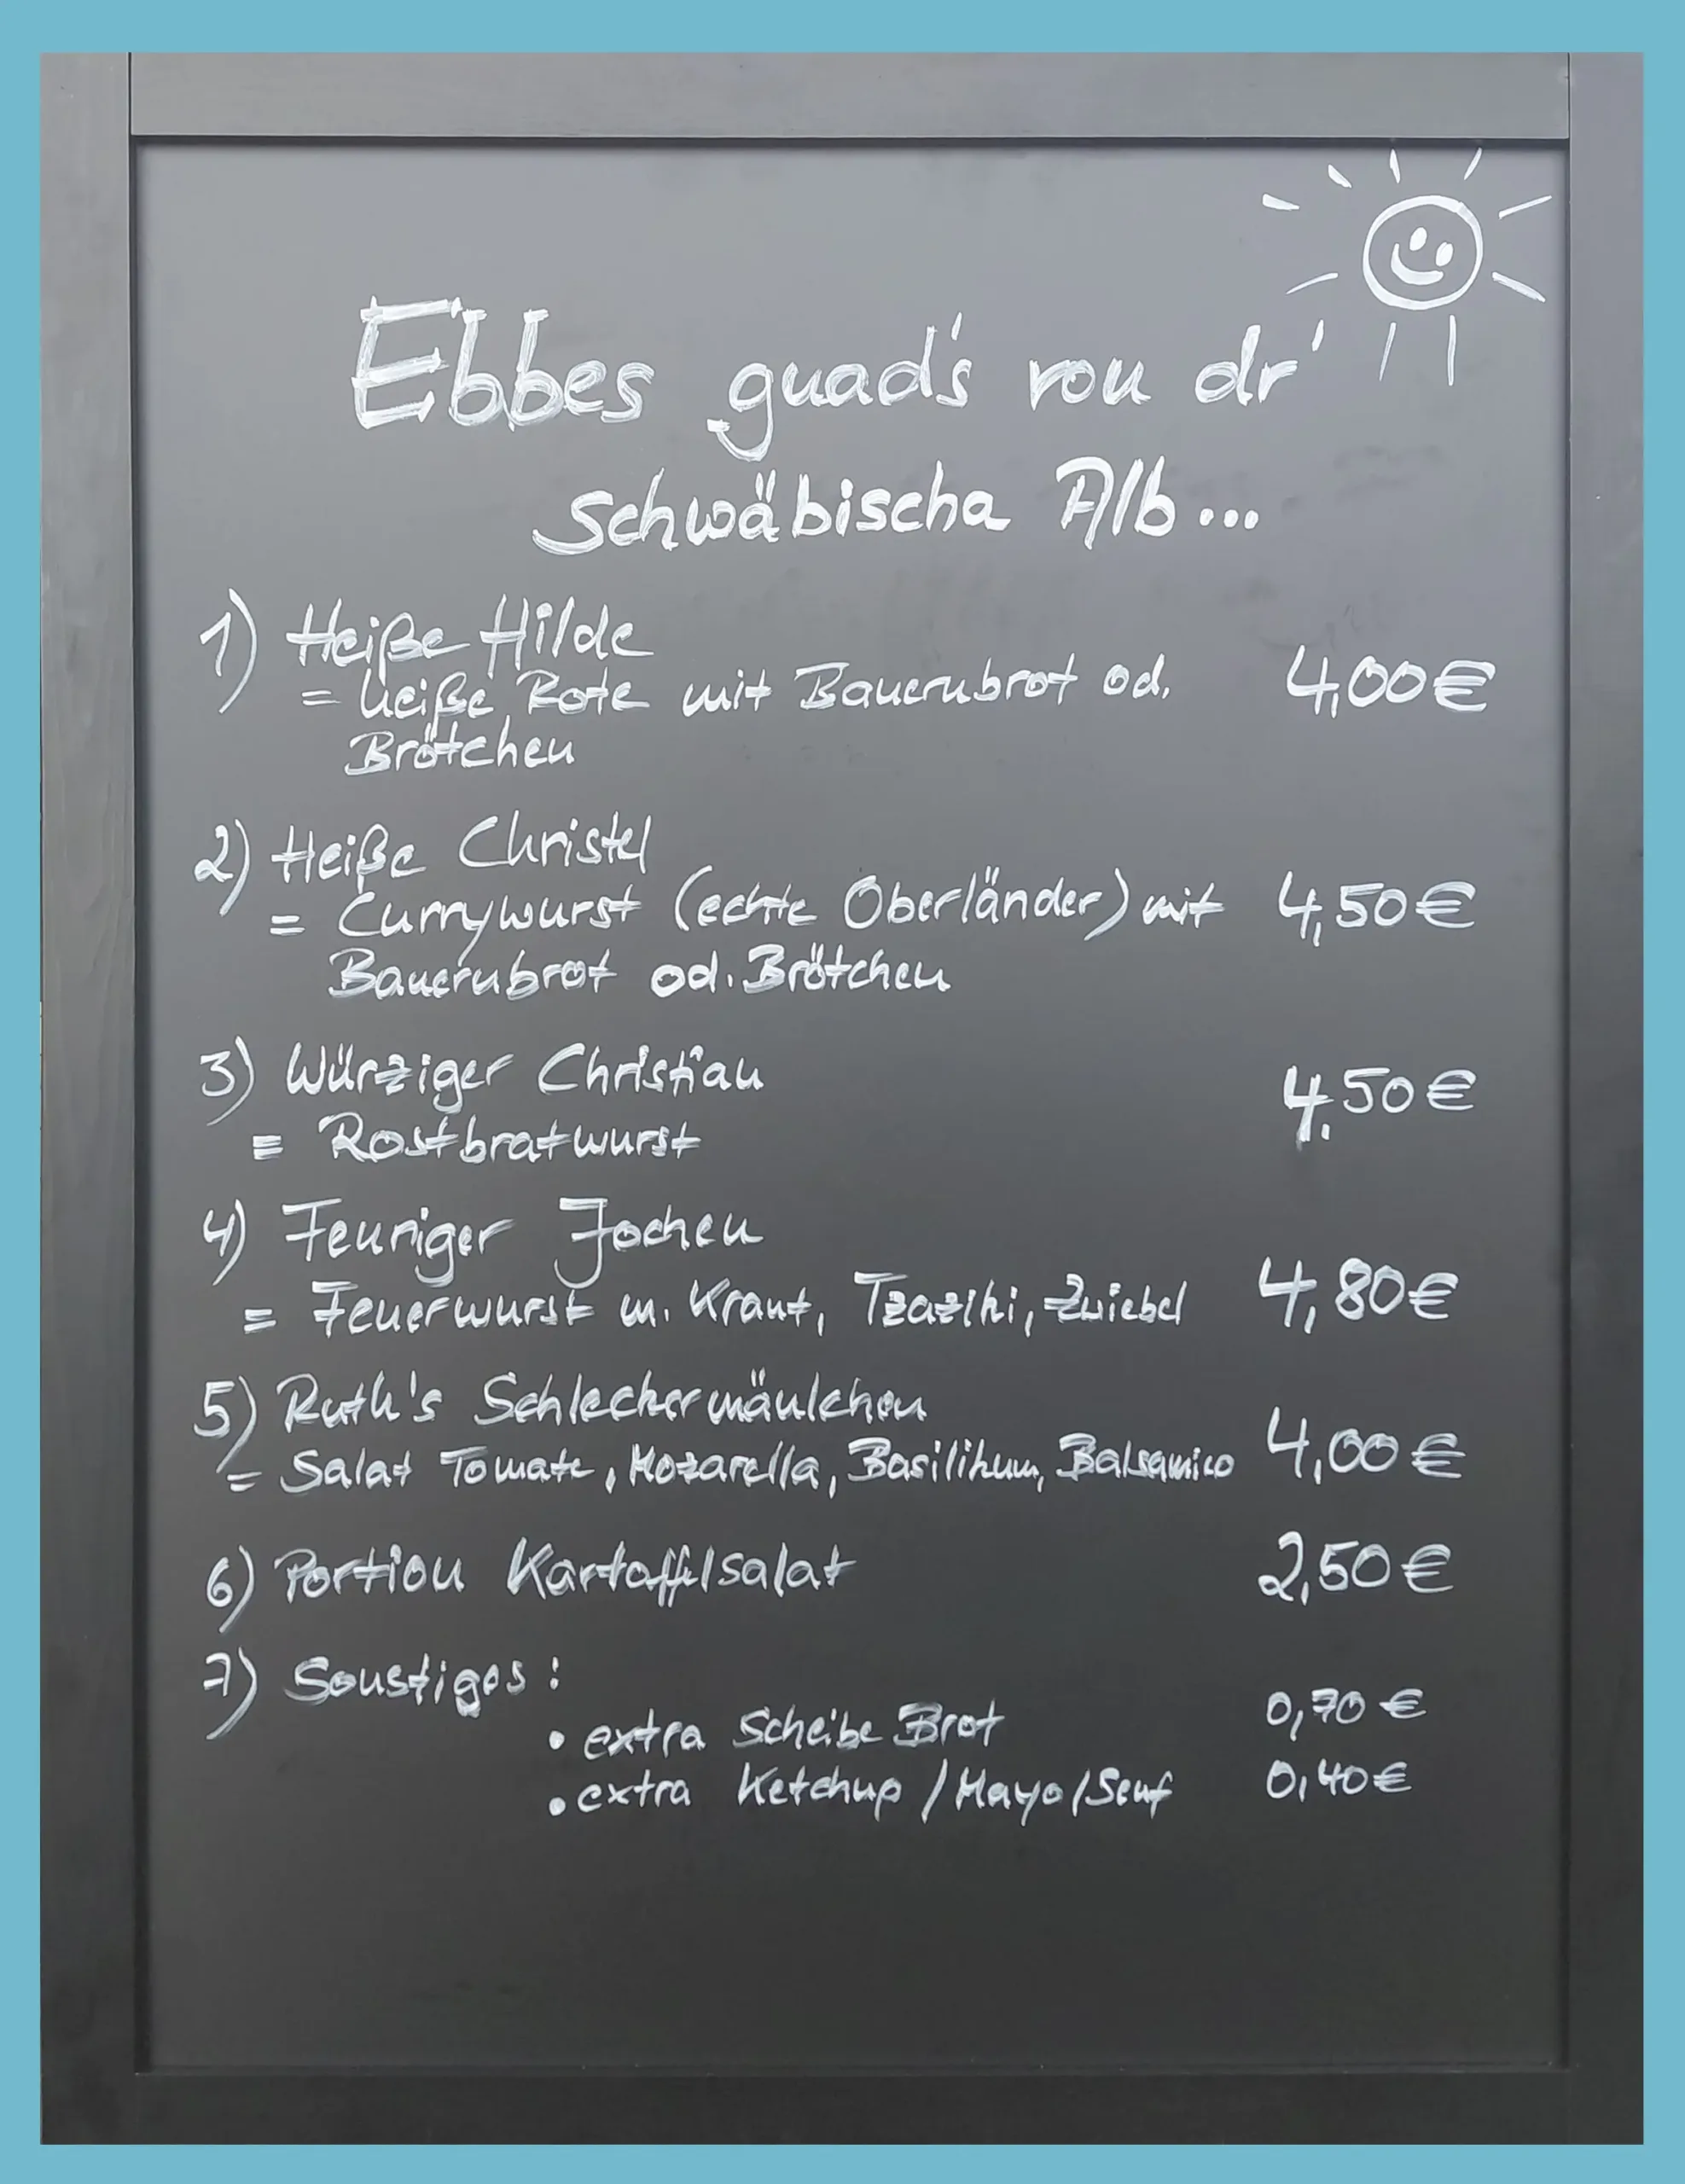 Ebbes guad's von dr'
Schwäbischa Alb...
1) Heiße Hilde
= heiße Rote mit Bauernbrot od. 4,00€
Brötchen
2) Heiße Christel
= Currywurst (echte Oberländer) mit 4,50€
Bauernbrot od. Brötchen
3) Würziger Christian
4,50€
= Rostbratwurst
4) Feuriger Jochen
= Feuerwurst m. Kraut, Tzaziki, Zwiebel 4,80€
5) Ruth's Schleckermäulchen
= Salat Tomate, Mozarella, Basilikum, Balsamico 4,00€
6) Portion Kartoffelsalat 2,50€
7) Sonstiges:
• extra Scheibe Brot 0,70€
• extra Ketchup / Mayo / Senf 0,40€